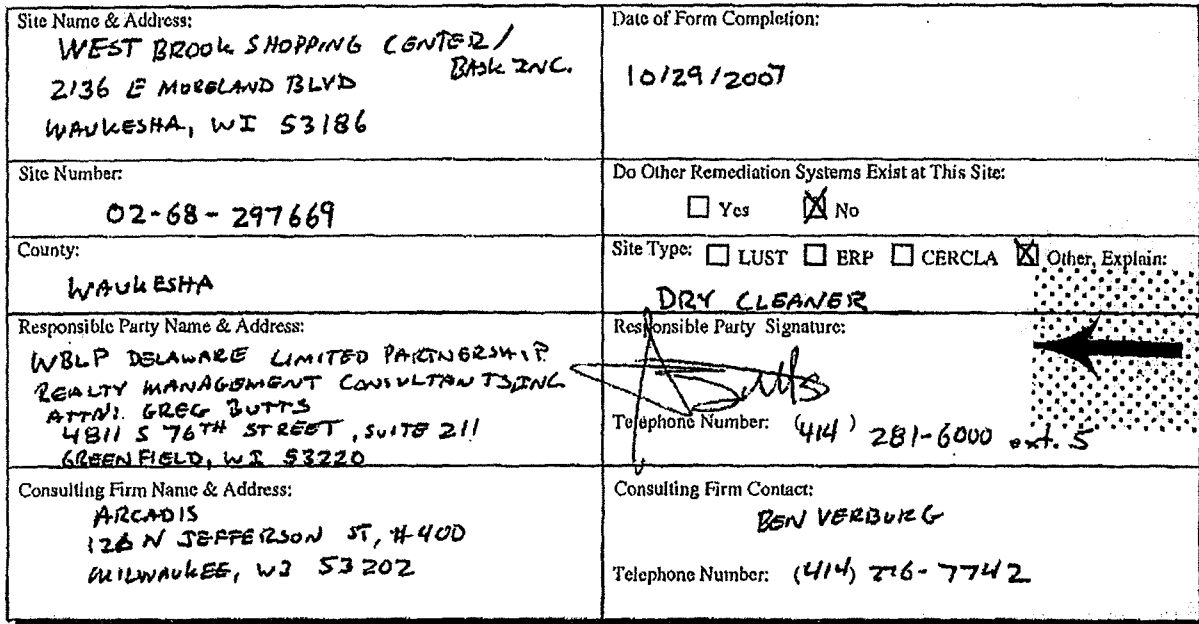 Site Name & Address:
WEST BROOK SHOPPING CENTER/
BASK INC.
2136 E MORELAND BLVD
WAUKESHA, WI 53186
Date of Form Completion:
10/29/2007
Site Number:
02-68-297669
Do Other Remediation Systems Exist at This Site:
☐ Yes ☒ No
County:
WAUKESHA
Site Type: ☐ LUST ☐ ERP ☐ CERCLA ☒ Other, Explain:
DRY CLEANER
Responsible Party Name & Address:
WBLP DELAWARE LIMITED PARTNERSHIP
REALTY MANAGEMENT CONSULTANTS, INC
ATTN: GREG BUTTS
4811 S 76TH STREET, SUITE 211
GREENFIELD, WI 53220
Responsible Party Signature:
Telephone Number: (414) 281-6000 ext. 5
Consulting Firm Name & Address:
ARCADIS
126 N JEFFERSON ST, #400
MILWAUKEE, WI 53202
Consulting Firm Contact:
BEN VERBURG
Telephone Number: (414) 276-7742